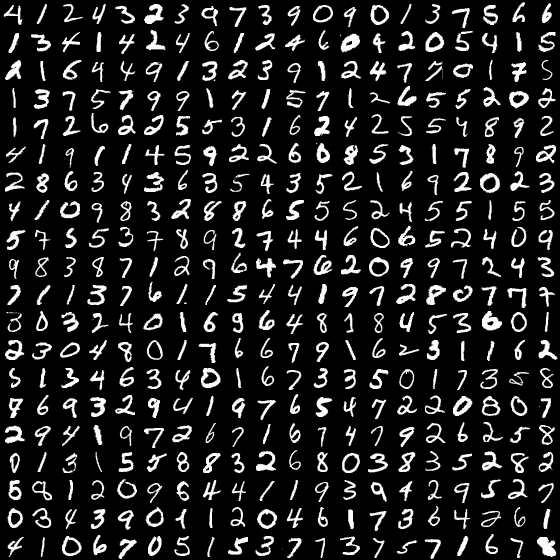 4 1 2 4 3 2 3 9 7 3 9 0 9 0 1 3 7 5 6 6
1 3 4 1 4 2 4 6 1 2 4 6 0 4 2 0 5 4 1 5
2 1 6 4 4 9 1 3 2 3 9 1 2 4 7 7 0 1 7 5
1 3 7 5 7 9 9 1 7 1 5 7 1 2 6 5 5 2 0 2
1 7 2 6 2 2 5 5 3 1 6 2 4 2 5 5 4 8 9 2
4 1 9 1 1 4 5 9 2 2 6 0 8 5 3 1 7 8 9 2
2 8 6 3 4 3 6 3 5 4 3 5 2 1 6 9 2 0 2 3
4 1 0 9 8 3 2 8 8 6 5 5 5 2 4 5 5 1 5 5
5 7 5 5 3 7 8 9 2 7 4 4 6 0 6 5 2 4 0 9
9 8 3 8 7 1 2 9 6 4 7 6 2 0 9 9 7 2 4 3
7 1 1 3 7 6 1 1 5 4 4 1 9 7 2 8 0 7 7 7
3 0 3 2 4 0 1 6 9 6 4 8 1 8 4 5 3 6 0 1
2 3 0 4 8 0 1 7 6 6 7 9 1 6 2 3 1 1 6 2
5 1 3 4 6 3 4 0 1 6 7 3 3 5 0 1 7 3 5 8
8 6 9 3 2 9 4 1 9 7 6 5 4 7 2 2 0 8 0 7
2 9 4 1 9 7 2 6 7 1 6 7 4 7 9 2 6 2 5 8
0 1 3 1 5 5 8 8 3 2 6 8 0 3 8 3 5 2 8 2
5 8 1 2 0 9 6 4 4 1 1 9 3 9 4 2 9 5 2 7
0 3 4 3 9 0 1 1 2 0 4 6 1 7 3 6 4 2 6 1
4 1 0 6 7 0 5 1 5 3 7 7 3 7 5 7 1 6 7